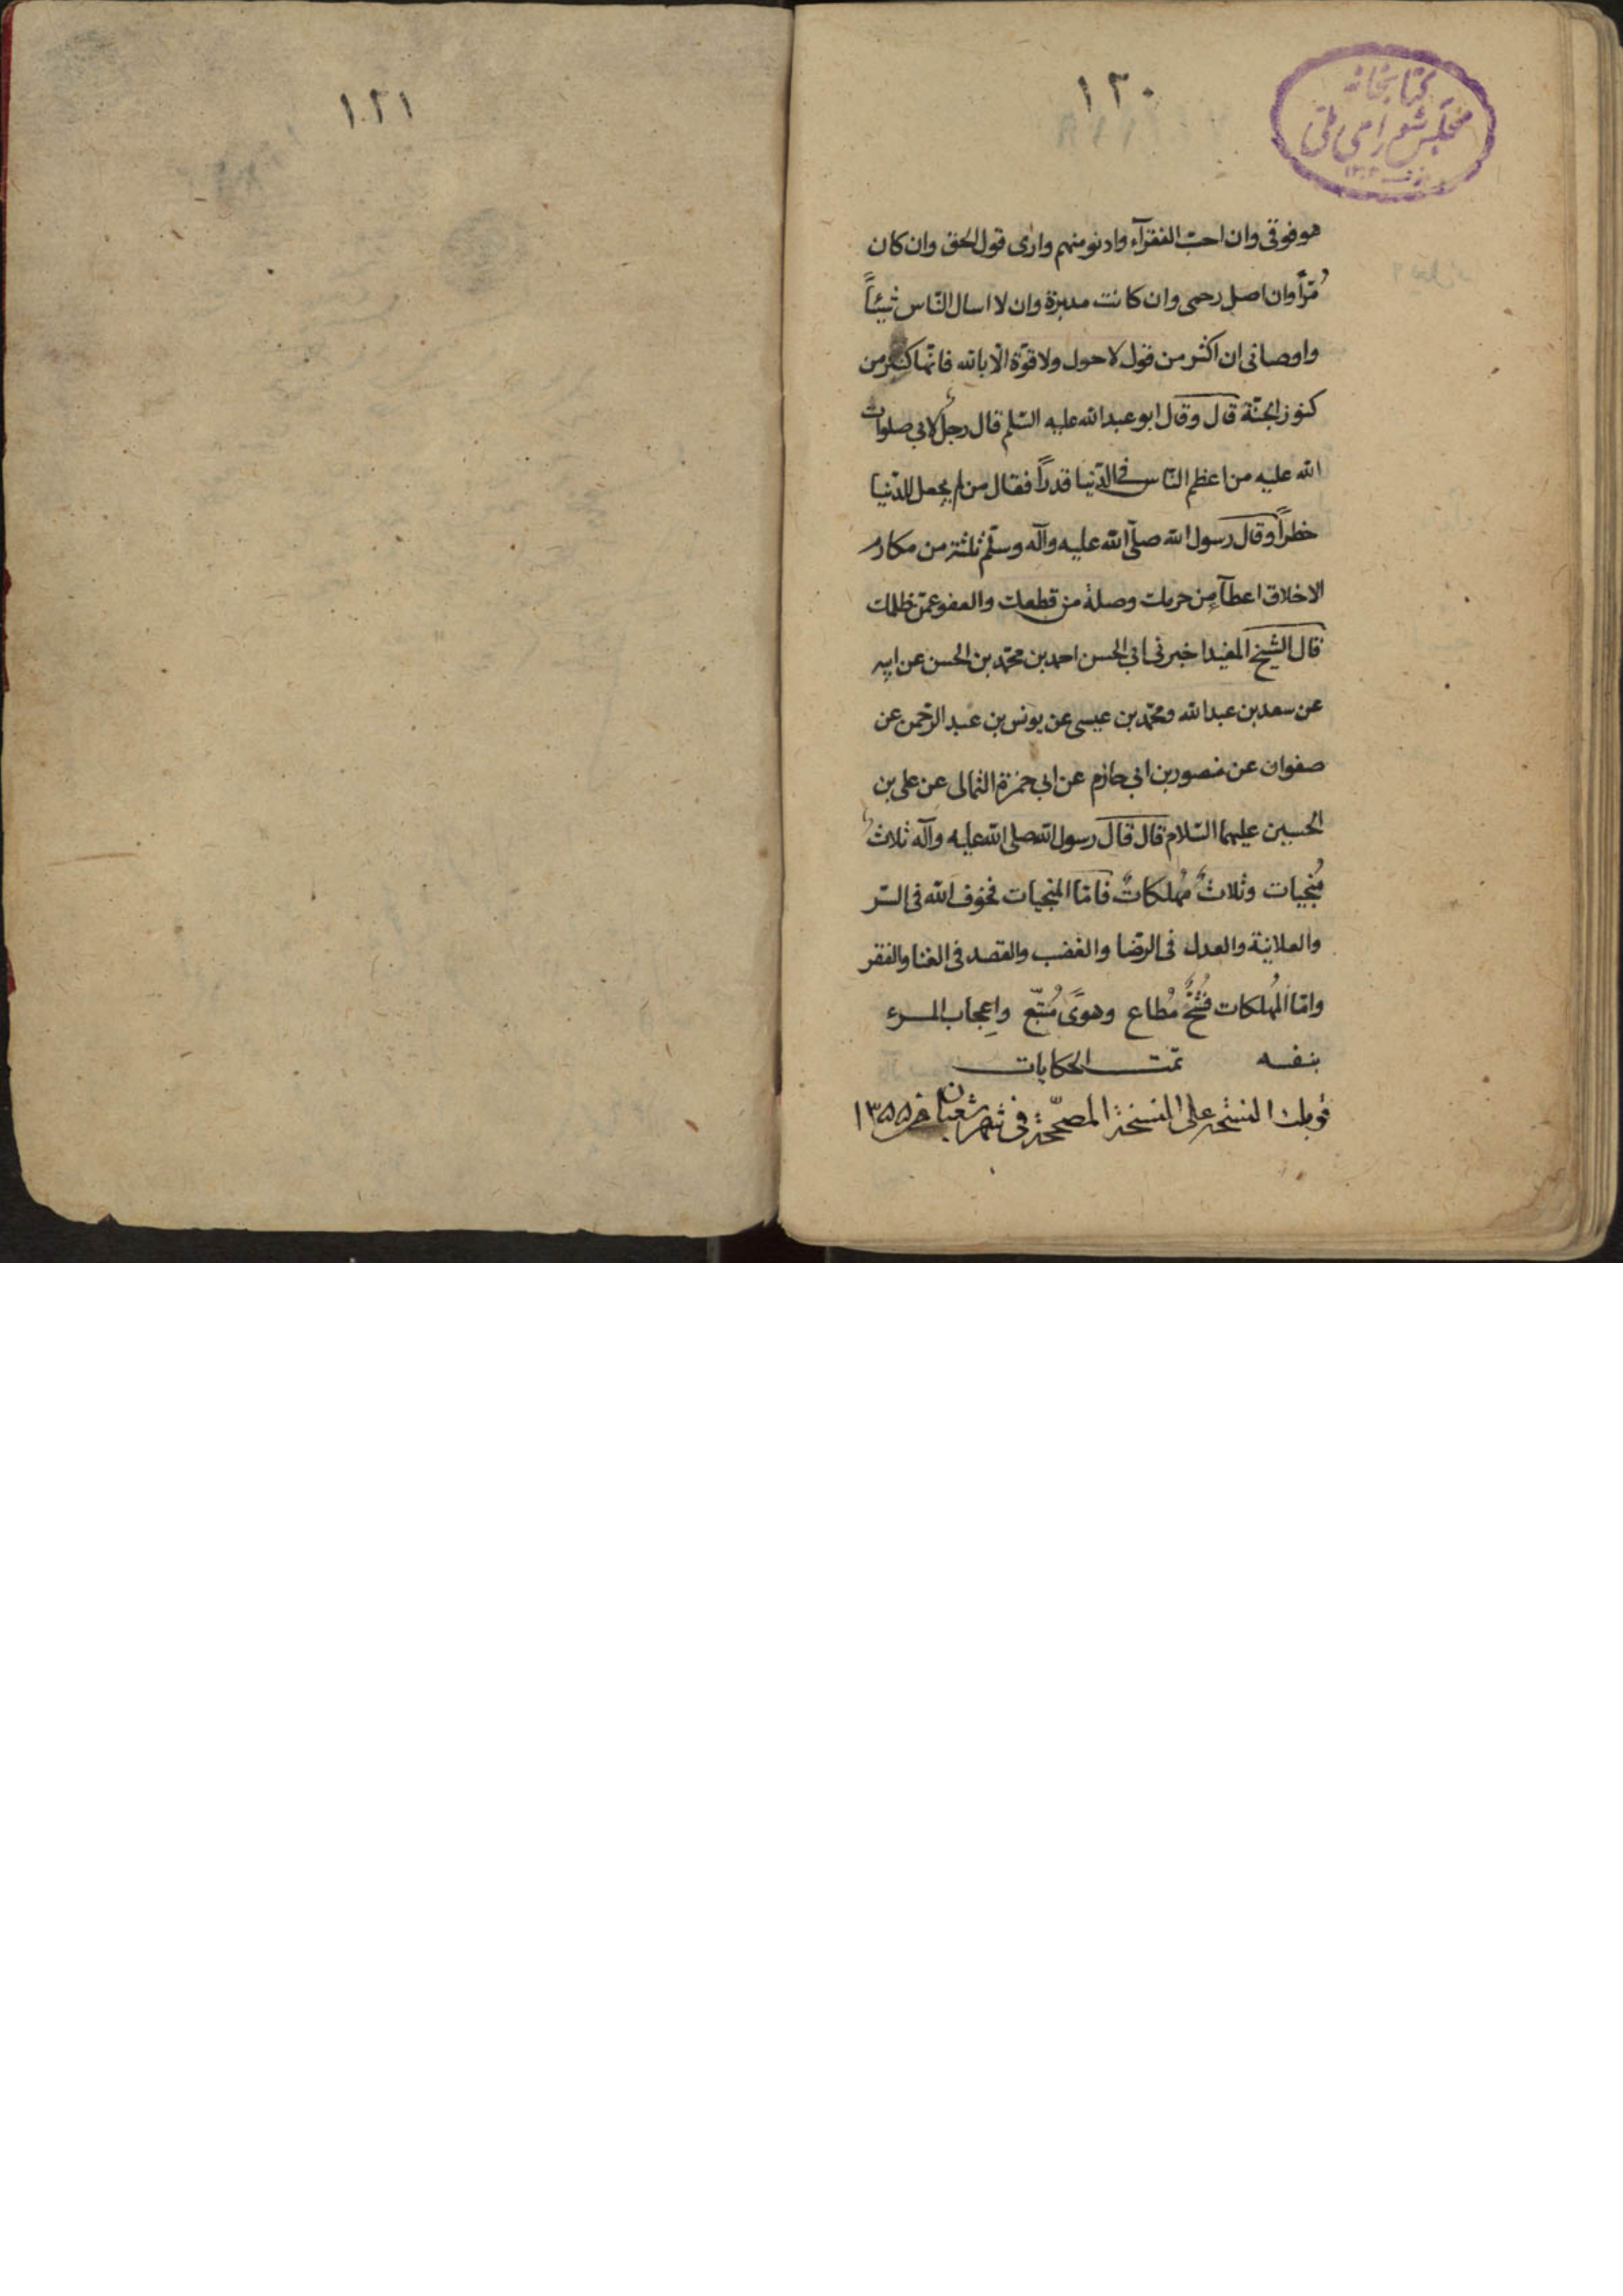 ١٢٠
كتابخانه
مجلس شورای ملی
هو فوقی وان احبّ الفقرآء وادنو منهم واری قول الحق وان كان
مُرّاً وان اصل رحمی وان كانت مدبرة وان لا اسال النّاس شيئاً
واوصانی ان اكثر من قول لا حول ولا قوّة الّا بالله فانّها كنز من
كنوز الجنّة قال وقال ابو عبد الله عليه السّلم قال رجل لابی صلوات
الله عليه من اعظم النّاس فی الدّنيا قدراً فقال من لم يجعل للدّنيا
خطراً وقال رسول الله صلّی الله عليه وآله وسلّم ثلثة من مكارم
الاخلاق اعطآء من حرمك وصلة من قطعك والعفو عمّن ظلمك
قال الشّيخ المفيد اخبرنی ابی الحسن احمد بن محمّد بن الحسن عن ابيه
عن سعد بن عبد الله ومحمّد بن عيسی عن يونس بن عبد الرّحمن عن
صفوان عن منصور بن ابی حازم عن ابی حمزة الثمالی عن علی بن
الحسين عليهما السّلام قال قال رسول الله صلی الله عليه وآله ثلاث
مُنجيات وثلاثٌ مُهلكاتٌ فامّا المنجيات فخوف الله فی السّر
والعلانية والعدل فی الرّضا والغضب والقصد فی الغنا والفقر
وامّا المُهلكات فشُحٌّ مُطاع وهویً مُتّبع واِعجاب المرء
بنفسه تمّت الحكايات
قوبلت النسخة علی النسخة المصحّحة فی شهر شعبان ١٣٥٥
١٢١